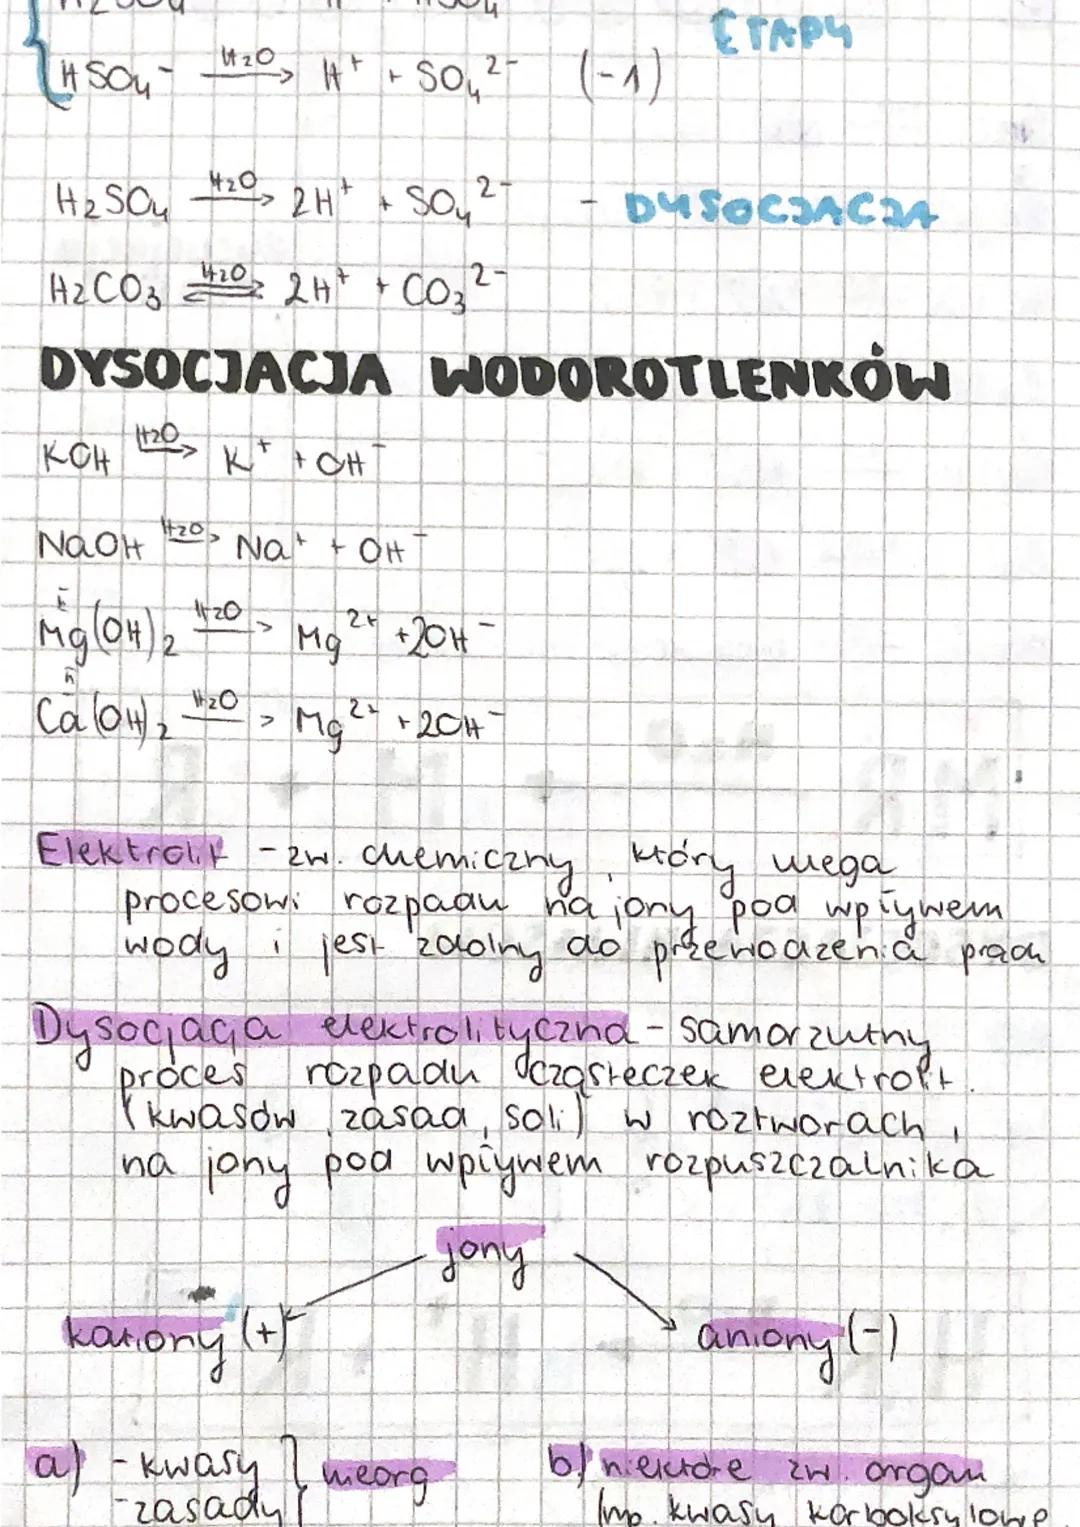 ETAPY
HSO₄⁻ H₂O→ H⁺ + SO₄²⁻ (-1)
H₂SO₄ H₂O→ 2H⁺ + SO₄²⁻ - DYSOCJACJA
H₂CO₃ H₂O⇌ 2H⁺ + CO₃²⁻
DYSOCJACJA WODOROTLENKÓW
KOH H₂O→ K⁺ + OH⁻
NaOH H₂O→ Na⁺ + OH⁻
Mg(OH)₂ H₂O→ Mg²⁺ + 2OH⁻
Ca(OH)₂ H₂O→ Mg²⁺ + 2OH⁻
Elektrolit - zw. chemiczny, który ulega
procesowi rozpadu na jony pod wpływem
wody i jest zdolny do przewodzenia prądu
Dysocjacja elektrolityczna - samorzutny
proces rozpadu cząsteczek elektrolit.
(kwasów, zasad, soli) w roztworach,
na jony pod wpływem rozpuszczalnika
jony
kationy (+) aniony (-)
a) - kwasy } nieorg b) niektóre zw. organ
- zasady (np. kwasy karboksylowe